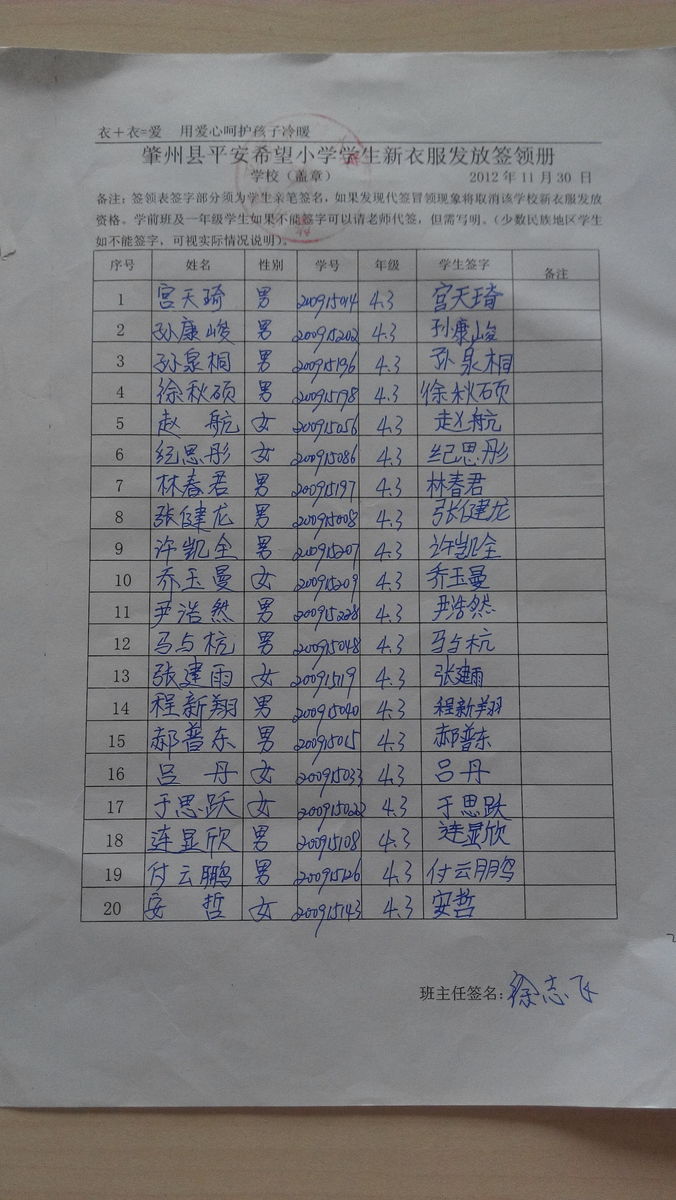 衣＋衣=爱 用爱心呵护孩子冷暖
肇州县平安希望小学学生新衣服发放签领册
学校（盖章） 2012 年 11 月 30 日
备注：签领表签字部分须为学生亲笔签名，如果发现代签冒领现象将取消该学校新衣服发放
资格。学前班及一年级学生如果不能签字可以请老师代签，但需写明。（少数民族地区学生
如不能签字，可视实际情况说明）。
序号 姓名 性别 学号 年级 学生签字 备注
1 宫天琦 男 200915014 4.3 宫天琦
2 孙康峻 男 200915202 4.3 孙康峻
3 孙泉桐 男 200915136 4.3 孙泉桐
4 徐秋硕 男 200915198 4.3 徐秋硕
5 赵航 女 200915056 4.3 赵航
6 纪思彤 女 200915086 4.3 纪思彤
7 林春君 男 200915197 4.3 林春君
8 张健龙 男 200915008 4.3 张健龙
9 许凯全 男 200915207 4.3 许凯全
10 乔玉曼 女 200915209 4.3 乔玉曼
11 尹浩然 男 200915228 4.3 尹浩然
12 马占杭 男 200915048 4.3 马占杭
13 张建雨 女 200915119 4.3 张建雨
14 程新翔 男 200915040 4.3 程新翔
15 郝普东 男 200915015 4.3 郝普东
16 吕丹 女 200915033 4.3 吕丹
17 于思跃 女 200915022 4.3 于思跃
18 连显欣 男 200915108 4.3 连显欣
19 付云鹏 男 200915126 4.3 付云鹏
20 安哲 女 200915143 4.3 安哲
班主任签名：徐志飞